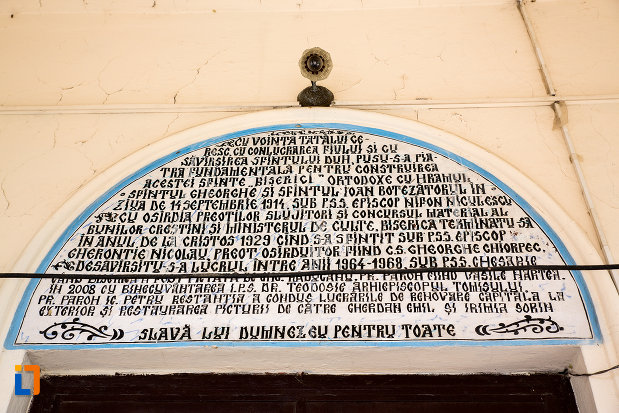 CU VOINȚA TATĂLUI CE-
RESC, CU CONLUCRAREA FIULUI ȘI CU
SĂVÎRȘIREA SFÎNTULUI DUH, PUSU-S-A PIA-
TRA FUNDAMENTALĂ PENTRU CONSTRUIREA
ACESTEI SFINTE "BISERICI" ORTODOXE CU HRAMUL
"SFÎNTUL GHEORGHE ȘI SFÎNTUL IOAN BOTEZĂTORUL" ÎN
ZIUA DE 14 SEPTEMBRIE 1914, SUB P.S.S. EPISCOP NIFON NICULESCU
CU OSÎRDIA PREOȚILOR SLUJITORI ȘI CONCURSUL MATERIAL AL
BUNILOR CREȘTINI ȘI MINISTERUL DE CULTE, BISERICA TERMINATU-SA
ÎN ANUL DE LA CRISTOS 1929 CÎND S-A SFINȚIT SUB P.S.S. EPISCOP
GHERONTIE NICOLAU, PREOT OSÎRDUITOR FIIND C.S. GHEORGHE CHIORPEC.
DESĂVÎRȘITU-S-A LUCRUL ÎNTRE ANII 1964-1968 SUB P.S.S. CHESARIE
PR. PAROH FIIND VASILE
ÎN 2008 CU BINECUVÂNTAREA I.P.S. DR. TEODOSIE ARHIEPISCOPUL TOMISULUI,
PR. PAROH IC. PETRU RESTANTIA A CONDUS LUCRĂRILE DE RENOVARE CAPITALĂ LA
EXTERIOR ȘI RESTAURAREA PICTURII DE CĂTRE GHERDAN EMIL ȘI IRIMIA SORIN
SLAVĂ LUI DUMNEZEU PENTRU TOATE